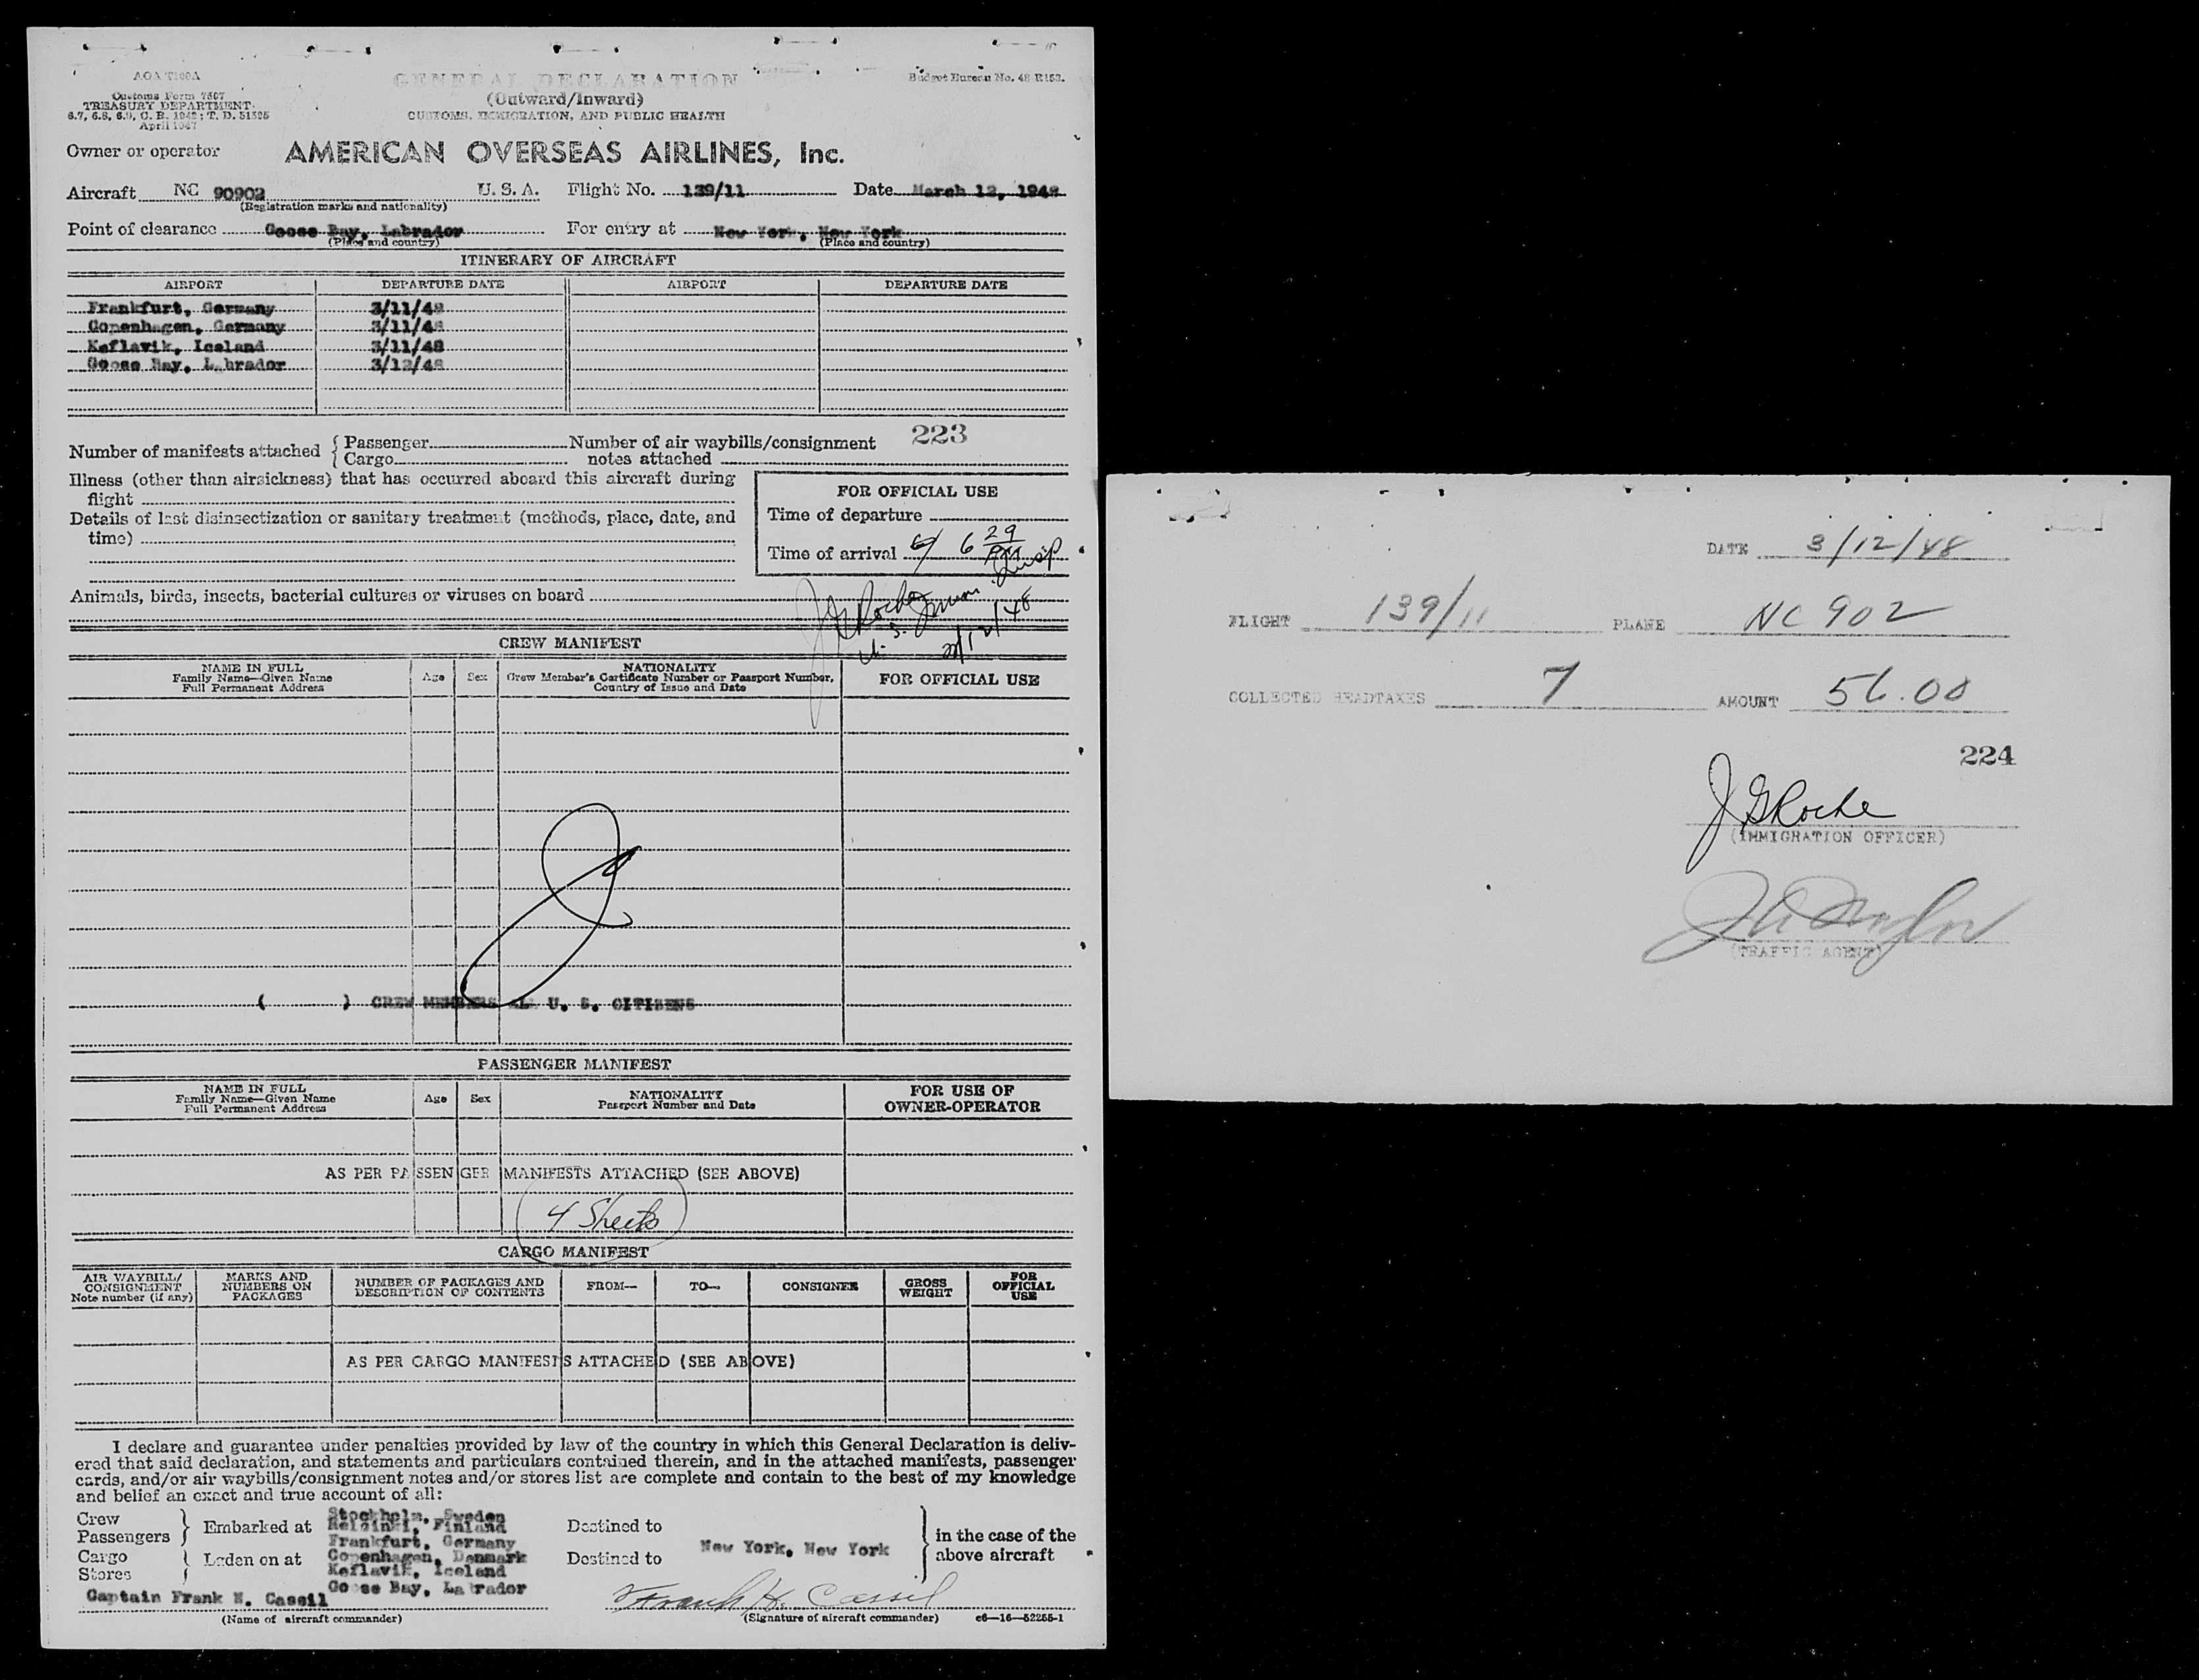 AOA T100A
Customs Form 7507
TREASURY DEPARTMENT
6.7, 6.8, 6.9, C. R. 1942; T. D. 51595
April 1947
GENERAL DECLARATION
(Outward/Inward)
CUSTOMS, IMMIGRATION, AND PUBLIC HEALTH
Budget Bureau No. 48-R153.
Owner or operator AMERICAN OVERSEAS AIRLINES, Inc.
Aircraft NC 90902 U. S. A. Flight No. 139/11 Date March 12, 1948
(Registration marks and nationality)
Point of clearance Goose Bay, Labrador For entry at New York, New York
(Place and country) (Place and country)
ITINERARY OF AIRCRAFT
AIRPORT DEPARTURE DATE AIRPORT DEPARTURE DATE
Frankfurt, Germany 3/11/48
Copenhagen, Germany 3/11/48
Keflavik, Iceland 3/11/48
Goose Bay, Labrador 3/12/48
223
Number of manifests attached { Passenger Number of air waybills/consignment
Cargo notes attached
Illness (other than airsickness) that has occurred aboard this aircraft during
flight
Details of last disinsectization or sanitary treatment (methods, place, date, and
time)
FOR OFFICIAL USE
Time of departure
Time of arrival 6 29 PM
Animals, birds, insects, bacterial cultures or viruses on board
J G Roche
U. S. 3/12/48
CREW MANIFEST
NAME IN FULL
Family Name—Given Name
Full Permanent Address
Age Sex
NATIONALITY
Crew Member's Certificate Number or Passport Number,
Country of Issue and Date
FOR OFFICIAL USE
( ) CREW MEMBERS ALL U. S. CITIZENS
PASSENGER MANIFEST
NAME IN FULL
Family Name—Given Name
Full Permanent Address
Age Sex
NATIONALITY
Passport Number and Date
FOR USE OF
OWNER-OPERATOR
AS PER PASSENGER MANIFESTS ATTACHED (SEE ABOVE)
4 Sheets
CARGO MANIFEST
AIR WAYBILL/
CONSIGNMENT
Note number (if any)
MARKS AND
NUMBERS ON
PACKAGES
NUMBER OF PACKAGES AND
DESCRIPTION OF CONTENTS
FROM— TO— CONSIGNEE
GROSS
WEIGHT
FOR
OFFICIAL
USE
AS PER CARGO MANIFESTS ATTACHED (SEE ABOVE)
I declare and guarantee under penalties provided by law of the country in which this General Declaration is deliv-
ered that said declaration, and statements and particulars contained therein, and in the attached manifests, passenger
cards, and/or air waybills/consignment notes and/or stores list are complete and contain to the best of my knowledge
and belief an exact and true account of all:
Crew
Passengers } Embarked at
Cargo
Stores } Laden on at
Stockholm, Sweden
Helsinki, Finland
Frankfurt, Germany
Copenhagen, Denmark
Keflavik, Iceland
Goose Bay, Labrador
Destined to
Destined to
New York, New York
} in the case of the
above aircraft
Captain Frank H. Cassil
(Name of aircraft commander)
Frank H. Cassil
(Signature of aircraft commander) c6—16—52255-1
DATE 3/12/48
FLIGHT 139/11 PLANE NC 902
COLLECTED HEADTAXES 7 AMOUNT 56.00
224
J G Roche
(IMMIGRATION OFFICER)
(TRAFFIC AGENT)